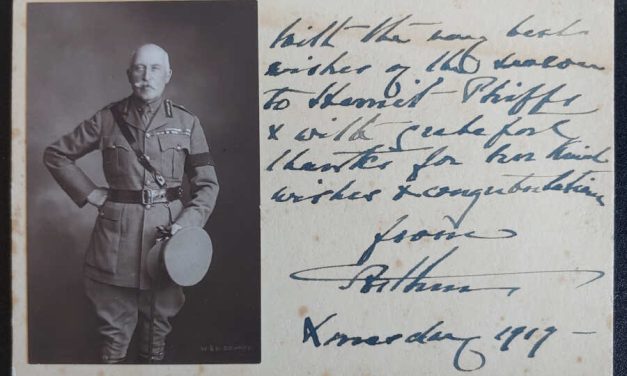 With the very best
wishes of the season
to Harriet Phipps
& with grateful
thanks for her kind
wishes & congratulations
from
Arthur
Xmas day 1917 –